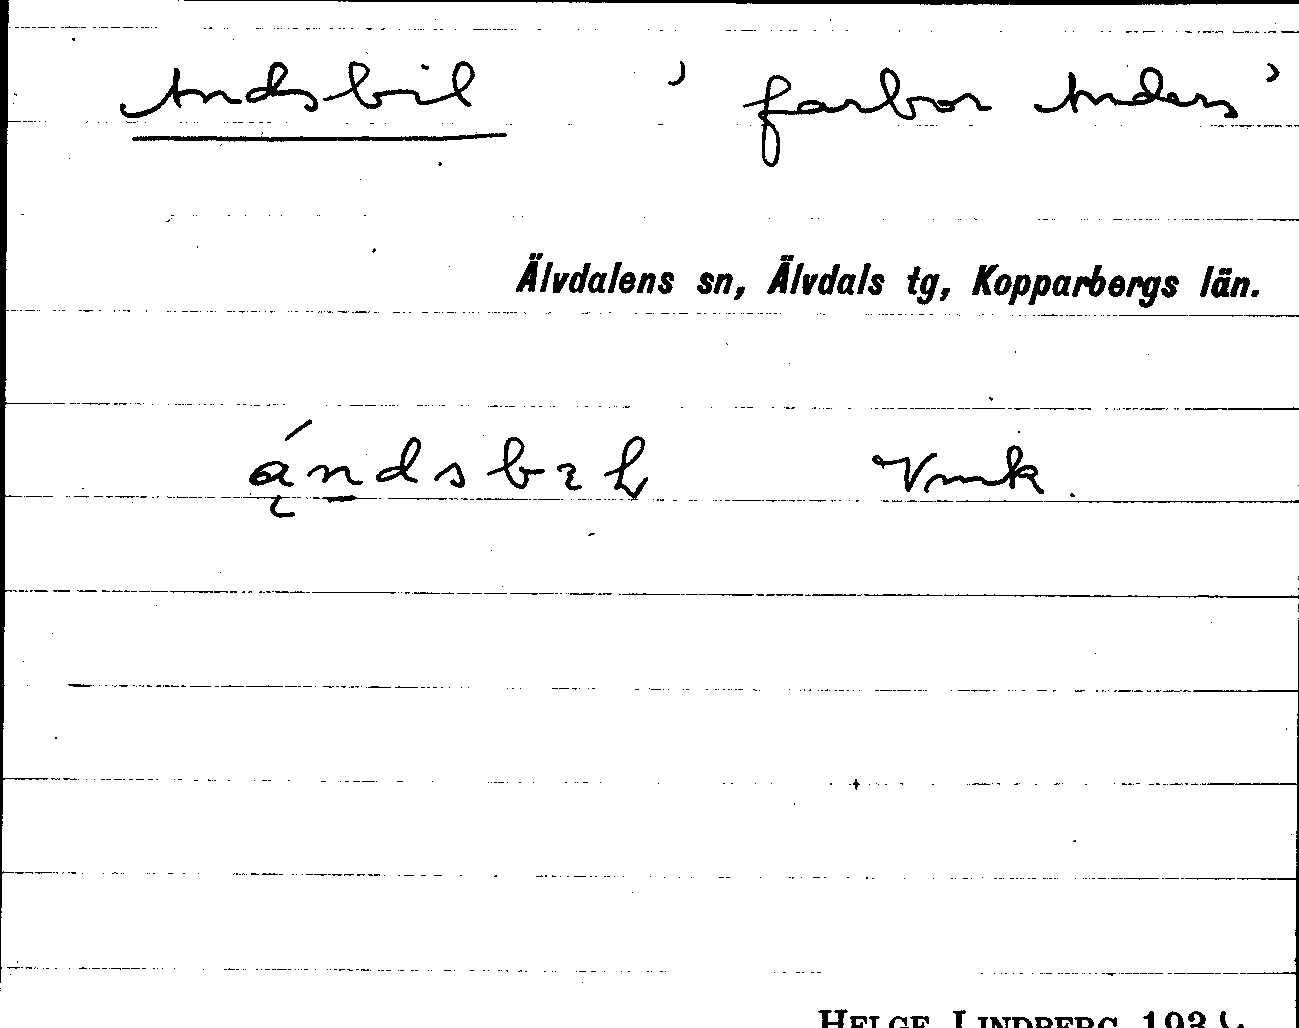 Andsbil 'farbor Anders'
Älvdalens sn, Älvdals tg, Kopparbergs län.
Vmk.
HELGE LINDBERG